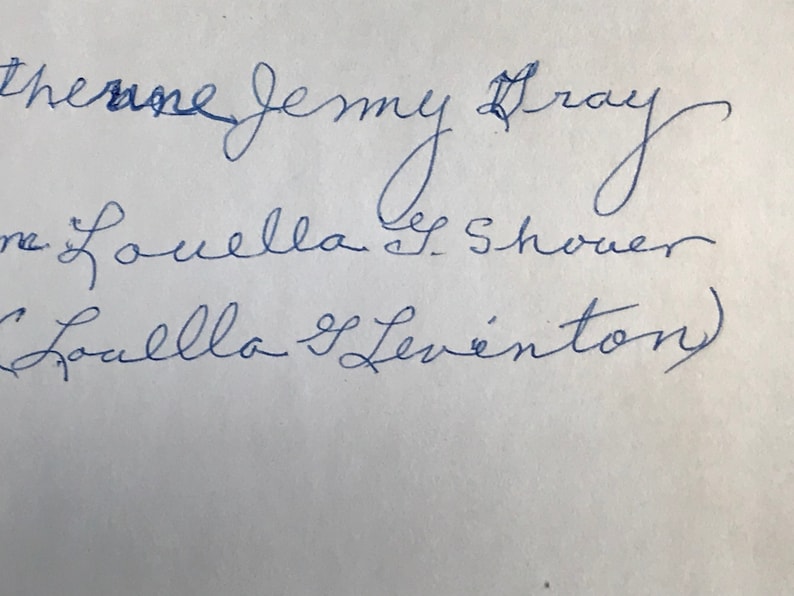 therine Jenny Gray
m Louella G. Shover
(Louella G Levinton)